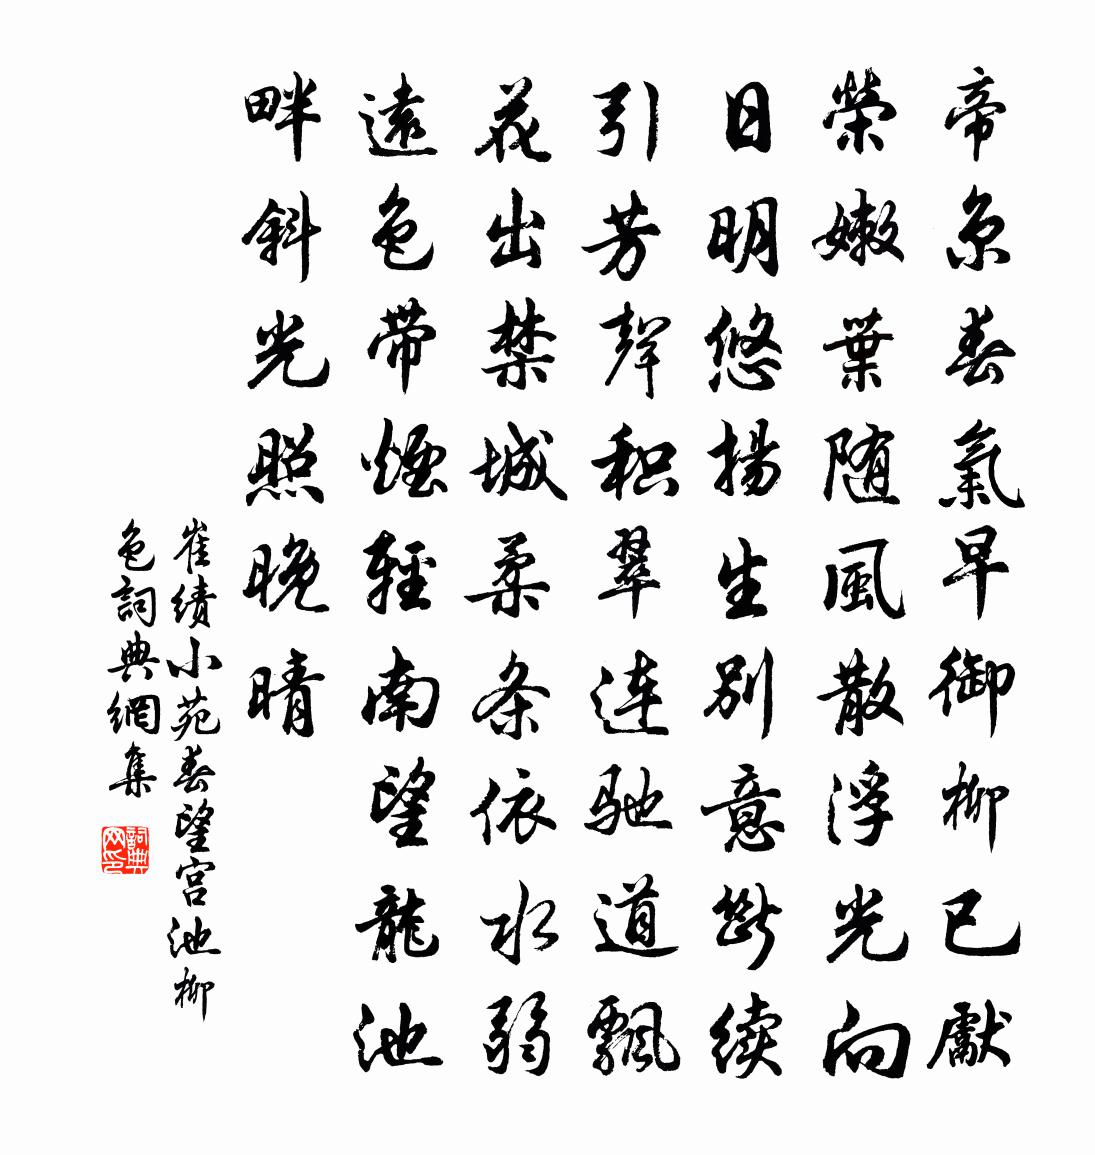 帝京春氣早御柳已獻
榮嫩葉随風散浮光向
日明悠揚生別意斷續
引芳聲积翠连驰道飄
花出禁城柔条依水弱
遠色带煙輕南望龍池
畔斜光照晚晴
崔績小苑春望宫池柳
色詞典網集
詞典网印